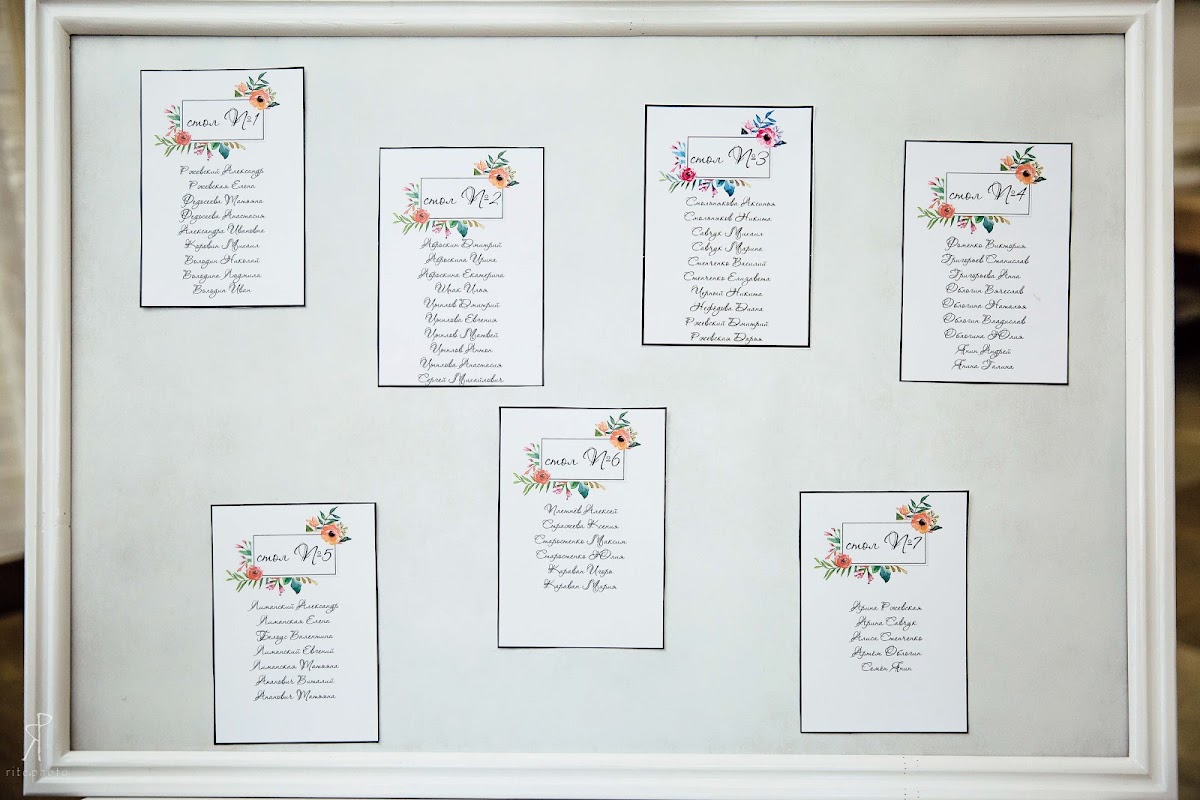 стол №1
Ржевский Александр
Ржевская Елена
Федосеева Татьяна
Федосеева Анастасия
Александра Ивановна
Каравин Михаил
Володин Николай
Володина Людмила
Володин Иван
стол №2
Аброскин Дмитрий
Аброскина Ирина
Аброскина Екатерина
Шрак Илья
Цыплов Дмитрий
Цыплова Евгения
Цыплов Матвей
Цыплов Антон
Цыплова Анастасия
Сергей Михайлович
стол №3
Смольникова Аксинья
Смольников Никита
Савчук Михаил
Савчук Марина
Степченко Василий
Степченко Елизавета
Черный Никита
Нефёдова Диана
Ржевский Дмитрий
Ржевская Дарья
стол №4
Фоменко Виктория
Григорьев Станислав
Григорьева Анна
Облогин Вячеслав
Облогина Наталья
Облогин Владислав
Облогина Юлия
Янин Андрей
Янина Галина
стол №5
Лиманский Александр
Лиманская Елена
Белоус Валентина
Лиманский Евгений
Лиманская Татьяна
Апанович Виталий
Апанович Татьяна
стол №6
Плетнёв Алексей
Стражева Ксения
Старостенко Максим
Старостенко Юлия
Караван Игорь
Караван Мария
стол №7
Арина Ржевская
Арина Савчук
Алиса Степченко
Артём Облогин
Семён Янин
rita photo